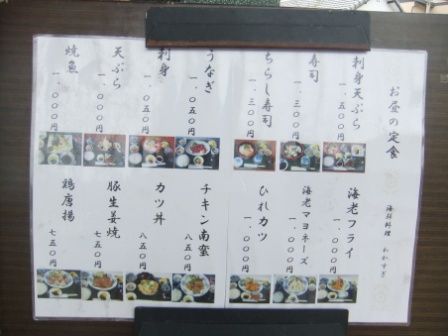 お昼の定食
海鮮料理 わかすぎ
刺身天ぷら
一、五〇〇円
寿司
一、三〇〇円
ちらし寿司
一、三〇〇円
うなぎ
一、〇五〇円
刺身
一、〇五〇円
天ぷら
一、〇〇〇円
焼魚
一、〇〇〇円
海老フライ
一、〇〇〇円
海老マヨネーズ
一、〇〇〇円
ひれカツ
一、〇〇〇円
チキン南蛮
八五〇円
カツ丼
八五〇円
豚生姜焼
七五〇円
鶏唐揚
七五〇円